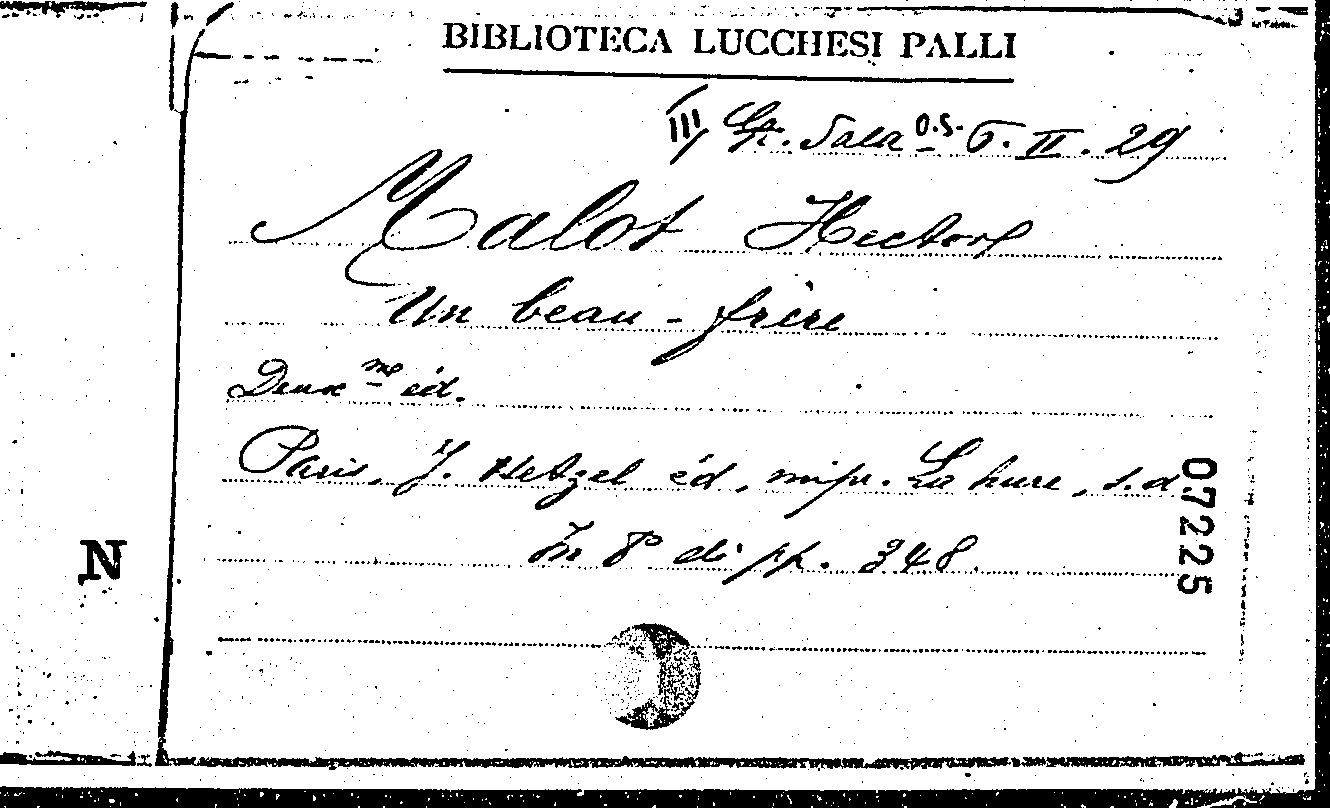 BIBLIOTECA LUCCHESI PALLI
III Gr. Sala O.S. T. II. 29
Malot Hector
Un beau-frère
Deuxme éd.
Paris, J. Hetzel éd, impr. La hure, s.d.
In 8° di pp. 348.
07225
N